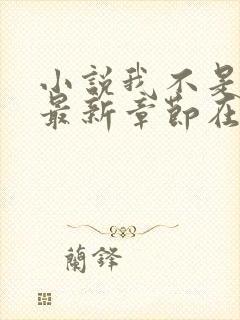 小説我不是
最新章節在
蘭鐸